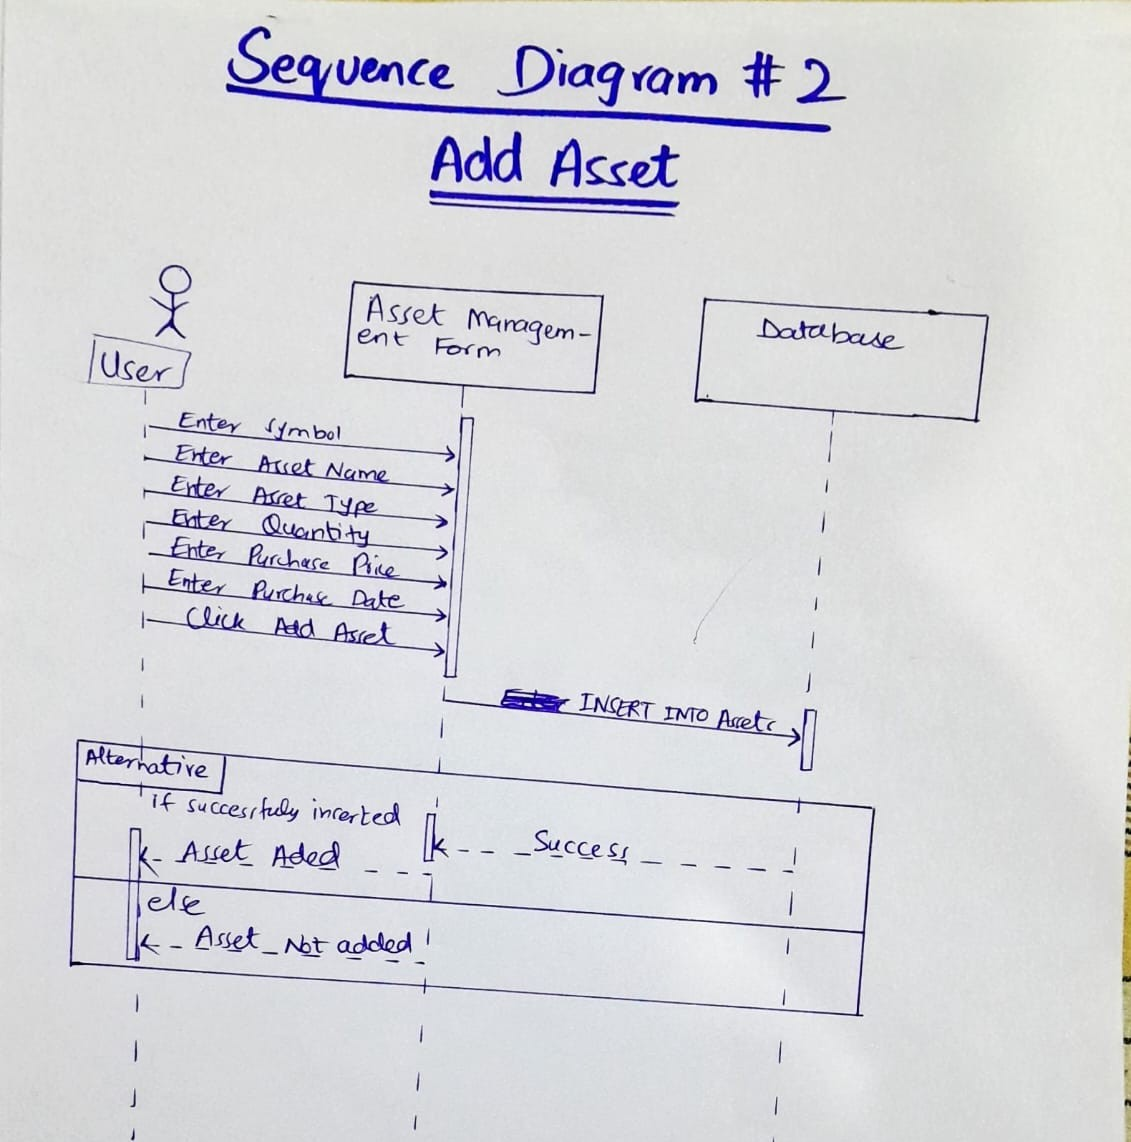 Sequence Diagram # 2
Add Asset
User
Asset Managem-
ent Form
Database
Enter Symbol
Enter Asset Name
Enter Asset Type
Enter Quantity
Enter Purchase Price
Enter Purchase Date
Click Add Asset
INSERT INTO Assets
Alternative
if successfuly inserted
Success
Asset Aded
else
Asset Not added